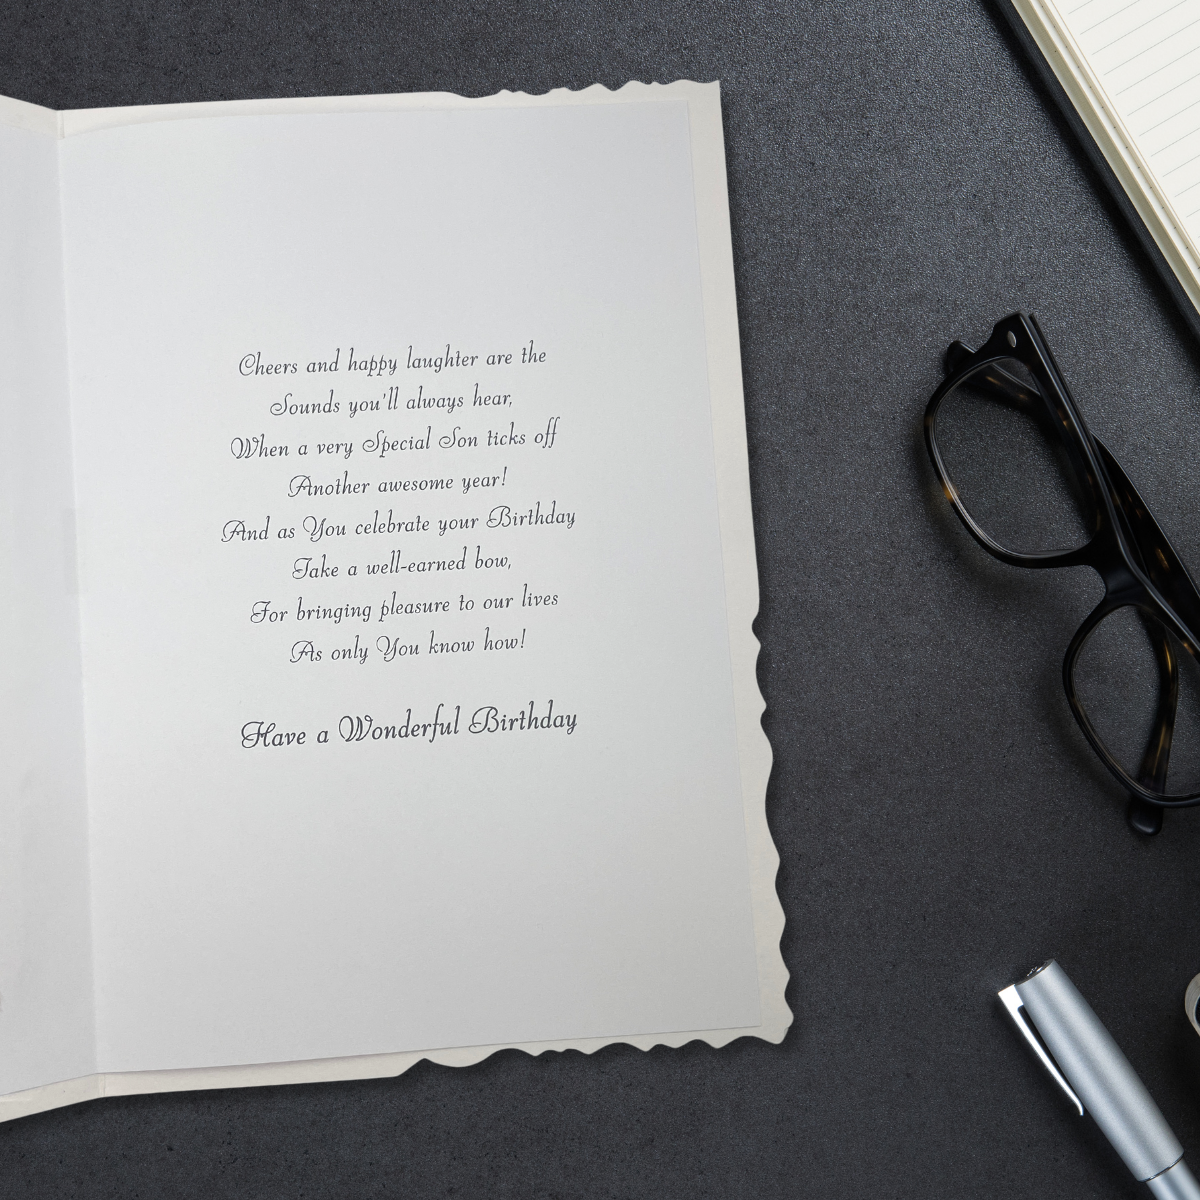 Cheers and happy laughter are the
Sounds you'll always hear,
When a very Special Son ticks off
Another awesome year!
And as You celebrate your Birthday
Take a well-earned bow,
For bringing pleasure to our lives
As only You know how!
Have a Wonderful Birthday